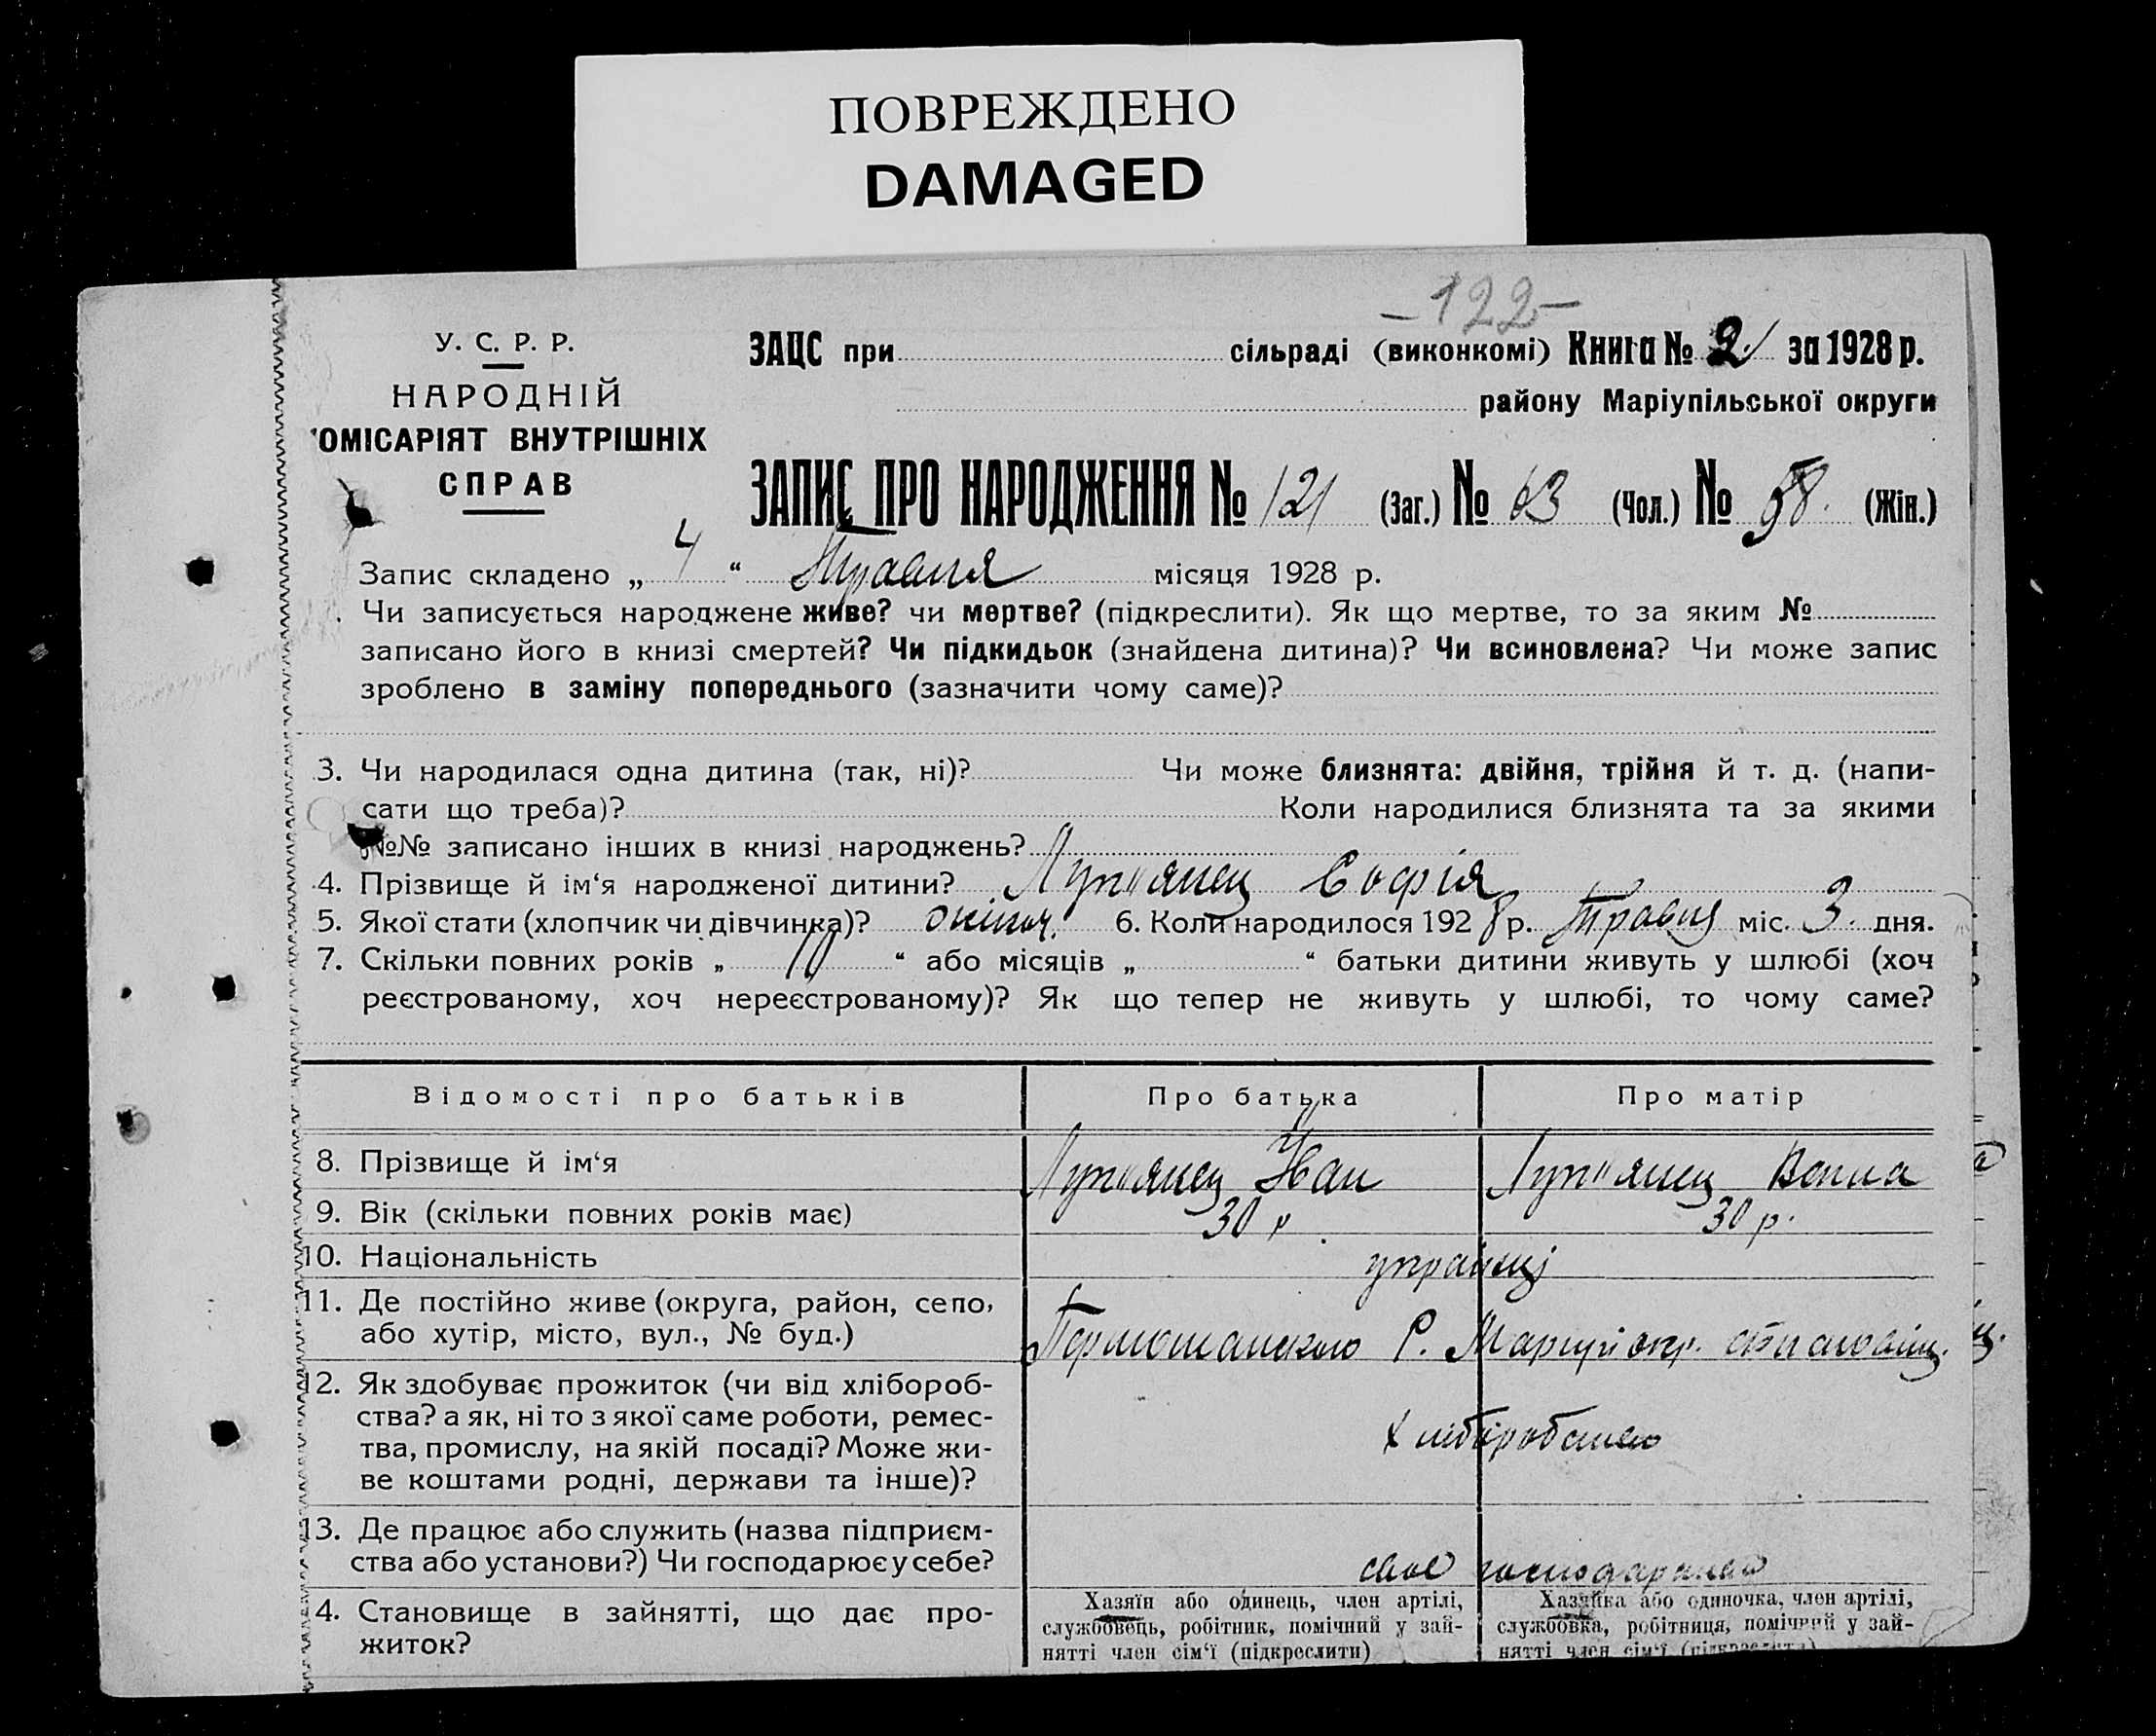 ПОВРЕЖДЕНО
DAMAGED
-122-
У. С. Р. Р.
НАРОДНІЙ
ОМІСАРІЯТ ВНУТРІШНІХ
СПРАВ
ЗАЦС при сільраді (виконкомі) Книга № 2 за 1928 р.
району Маріупільської округи
ЗАПИС ПРО НАРОДЖЕННЯ № 121 (Заг.) № 63 (Чол.) № 58. (Жін.)
Запис складено „ 4 “ Травня місяця 1928 р.
Чи записується народжене живе? чи мертве? (підкреслити). Як що мертве, то за яким №
записано його в книзі смертей? Чи підкидьок (знайдена дитина)? Чи всиновлена? Чи може запис
зроблено в заміну попереднього (зазначити чому саме)?
3. Чи народилася одна дитина (так, ні)? Чи може близнята: двійня, трійня й т. д. (напи-
сати що треба)? Коли народилися близнята та за якими
№№ записано інших в книзі народжень?
4. Прізвище й ім‘я народженої дитини? Лук"янец Софія
5. Якої стати (хлопчик чи дівчинка)? жіноч. 6. Коли народилося 1928 р. Травня міс. 3. дня.
7. Скільки повних років „ 10 “ або місяців „ “ батьки дитини живуть у шлюбі (хоч
реєстрованому, хоч нереєстрованому)? Як що тепер не живуть у шлюбі, то чому саме?
Відомості про батьків Про батька Про матір
8. Прізвище й ім‘я Лук"янец Іван Лук"янец
9. Вік (скільки повних років має) 30 р. 30 р.
10. Національність українці
11. Де постійно живе (округа, район, село,
або хутір, місто, вул., № буд.) Р.
12. Як здобуває прожиток (чи від хлібороб-
ства? а як, ні то з якої саме роботи, ремес-
тва, промислу, на якій посаді? Може жи-
ве коштами родні, держави та інше)?
13. Де працює або служить (назва підприєм-
ства або установи?) Чи господарює у себе? своє
4. Становище в зайнятті, що дає про-
житок?
Хазяїн або одинець, член артілі,
службовець, робітник, помічний у зай-
нятті член сім‘ї (підкреслити)
Хазяйка або одиночка, член артілі,
службовка, робітниця, помічний у зай-
нятті член сім‘ї (підкреслити)